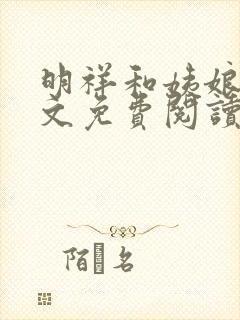 明祥和姨娘
文免費閱讀
陌 名